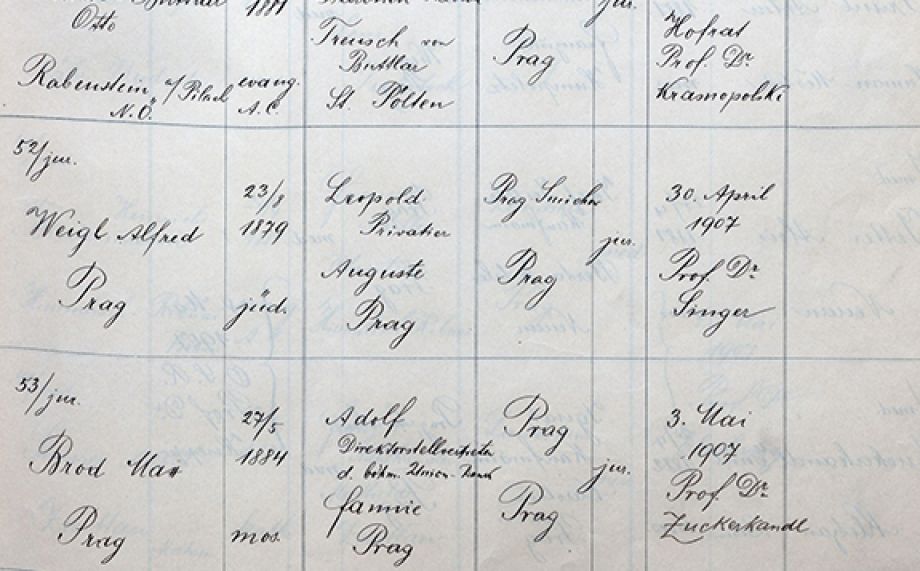 Otto
Rabenstein a/Pilach
N.Ö.
evang.
A.C.
Treusch von
Buttlar
St. Pölten
Prag
jur.
Hofrat
Prof. Dr
Krasnopolski
52/jur.
Weigl Alfred
Prag
23/8
1879
jüd.
Leopold
Privatier
Auguste
Prag
Prag Smichov
Prag
jur.
30. April
1907
Prof. Dr
Singer
53/jur.
Brod Max
Prag
27/5
1884
mos.
Adolf
Direktorstellvertreter
d. böhm. Union-Bank
Fannie
Prag
Prag
Prag
jur.
3. Mai
1907
Prof. Dr
Zuckerkandl